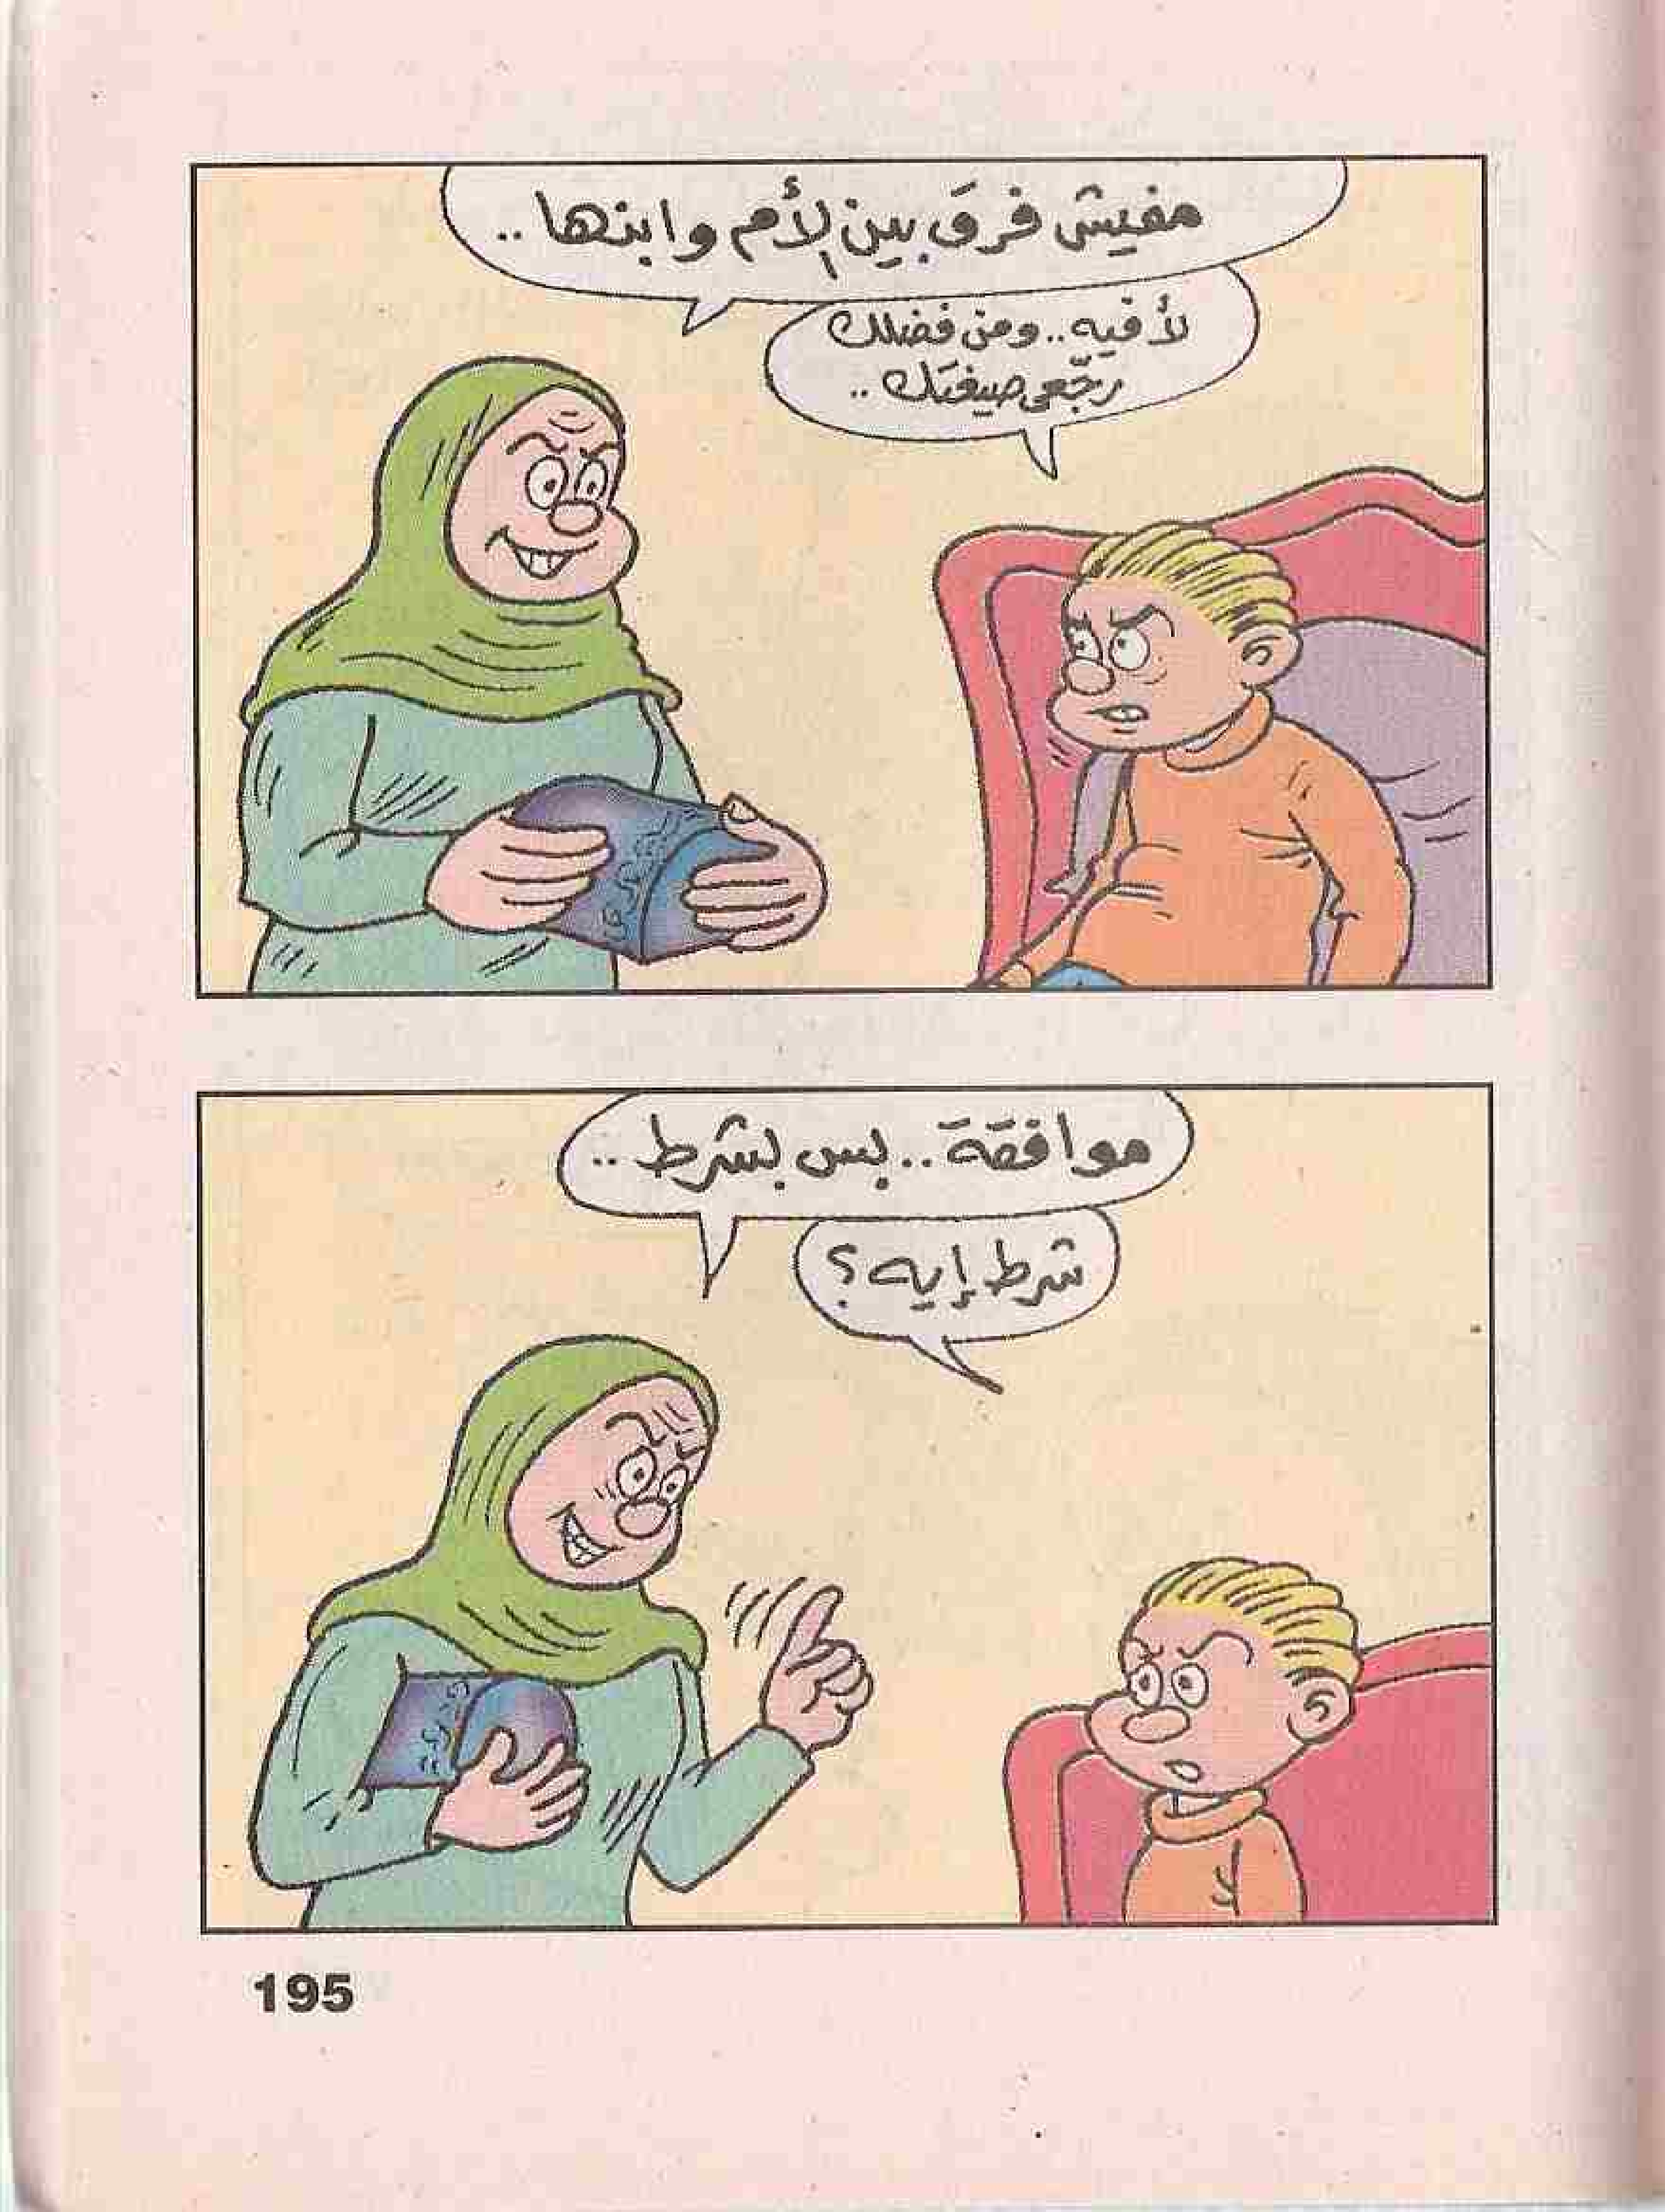 مفيش فرق بين الأم وابنها ..
لأ فيه .. ومن فضلك
رجّعى صيغتك ..
موافقة .. بس بشرط ..
شرط إيه ؟
195